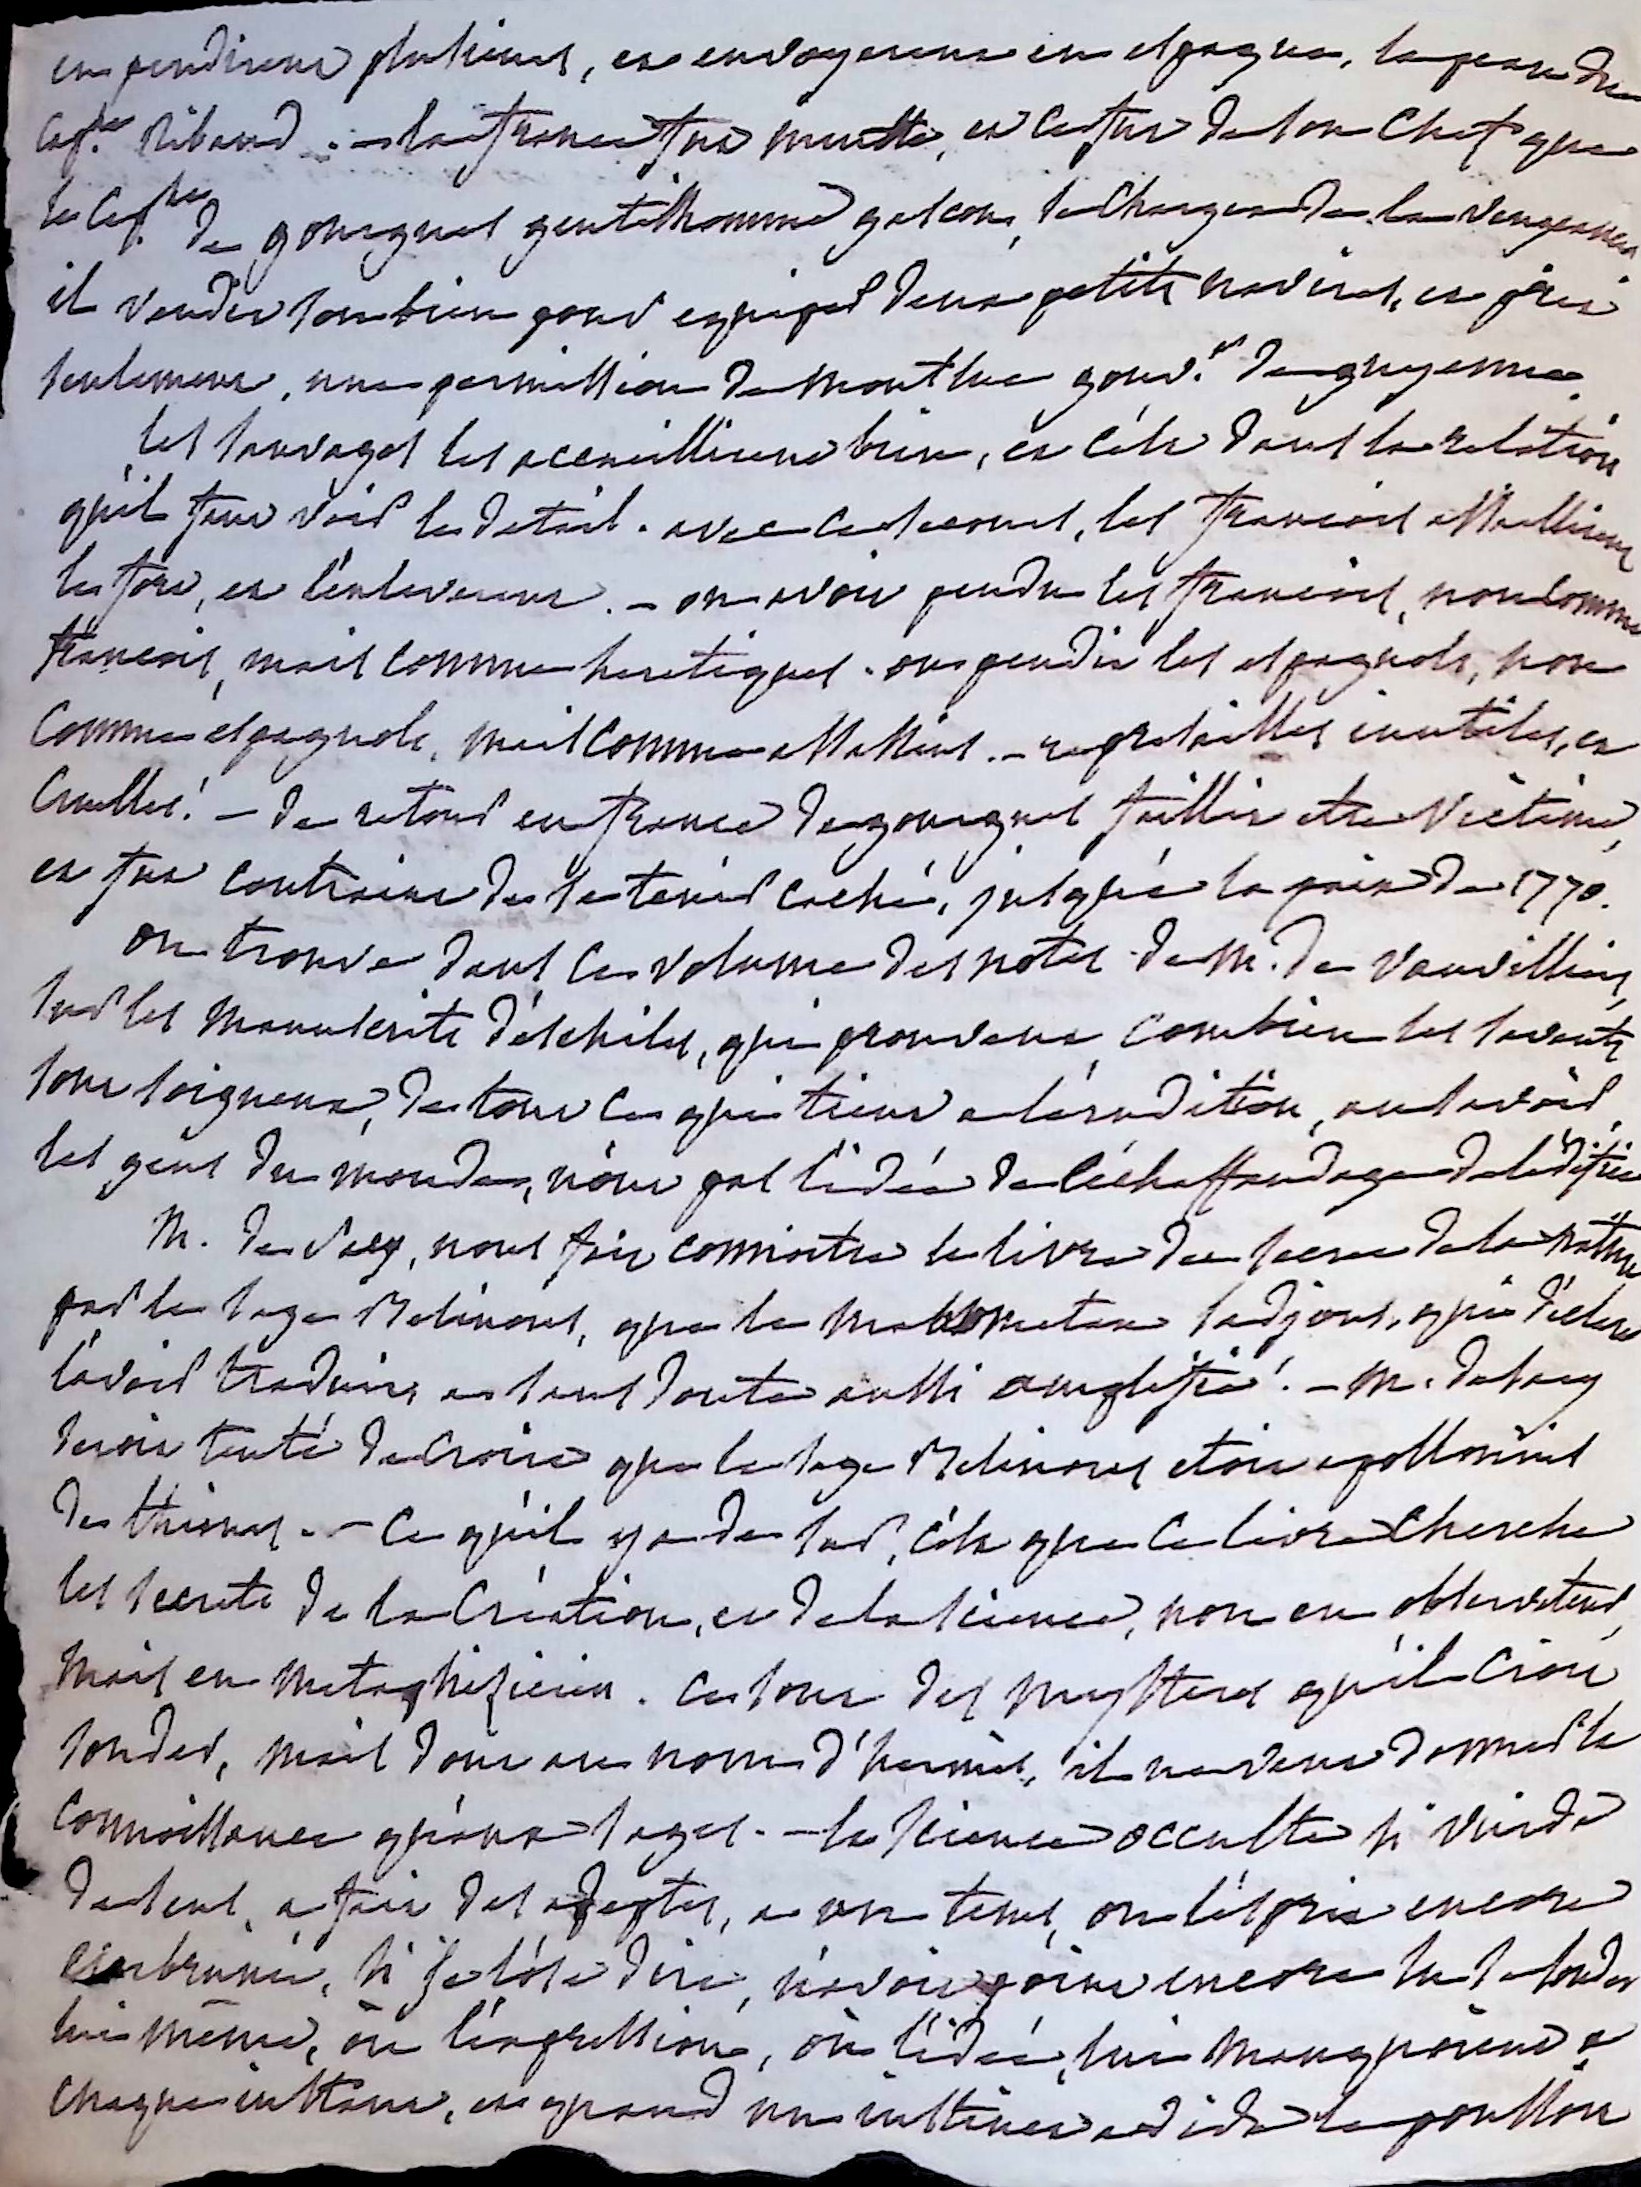 en pendirent plusieurs, et envoyerent en espagne, la peau du
cap.ne Ribaud. – la france fut muette, et ce fut de son chef que
le cap.ne de gourgues gentilhomme gascon, se chargea de la vengeance
il vendit son bien pour equiper deux petits navires, et prit
seulement, une permission de montluc gouv.r de guyenne.
les sauvages les accueillirent bien, et c'est dans la relation
qu'il faut voir le detail. avec ce secours, les francois assaillirent
le fort, et l'enleverent. – on avoit pendu les francois, non comme
francois, mais comme heretiques. on pendit les espagnols, non
comme espagnols, mais comme assassins. – represailles inutiles, et
cruelles! – de retour en france de gourgues faillit etre victime,
et fut contraint de se tenir caché, jusqu'à la paix de 1770.
on trouve dans ce volume des notes de M. de vauvilliers,
sur les manuscrits d'eschiles, qui prouvent, combien les savants
sont soigneux, de tout ce qui tient a l'erudition, au savoir,
les gens du monde, n'ont pas l'idée de l'echaffaudage de l'edifice
M. de sacy, nous fait connoitre le livre du secret de la nature
par le sage Belinous, que le mahometan sadjous, qui declare
l'avoir traduit, a sans doute aussi amplifié! – M. de sacy
seroit tenté de croire que le sage Belinous etoit apollonius
de thianes. – ce qu'il y a de sur, c'est que ce livre cherche
les secrets de la création, et de la science, non en observateur,
mais en metaphisicien. ce sont des mysteres qu'il croit
sonder, mais dont au nom d'hermès, il ne veut donner la
connoissance qu'aux sages. – la science occulte si vuide
de sens, a fait des adeptes, a un tems, ou l'esprit encore
embrumé, si je l'ose dire, n'avoit point encore su se sonder
lui même, ou l'expression, ou l'idée, lui manquoient a
chaque instant, et quand un instinct avide le poussoit